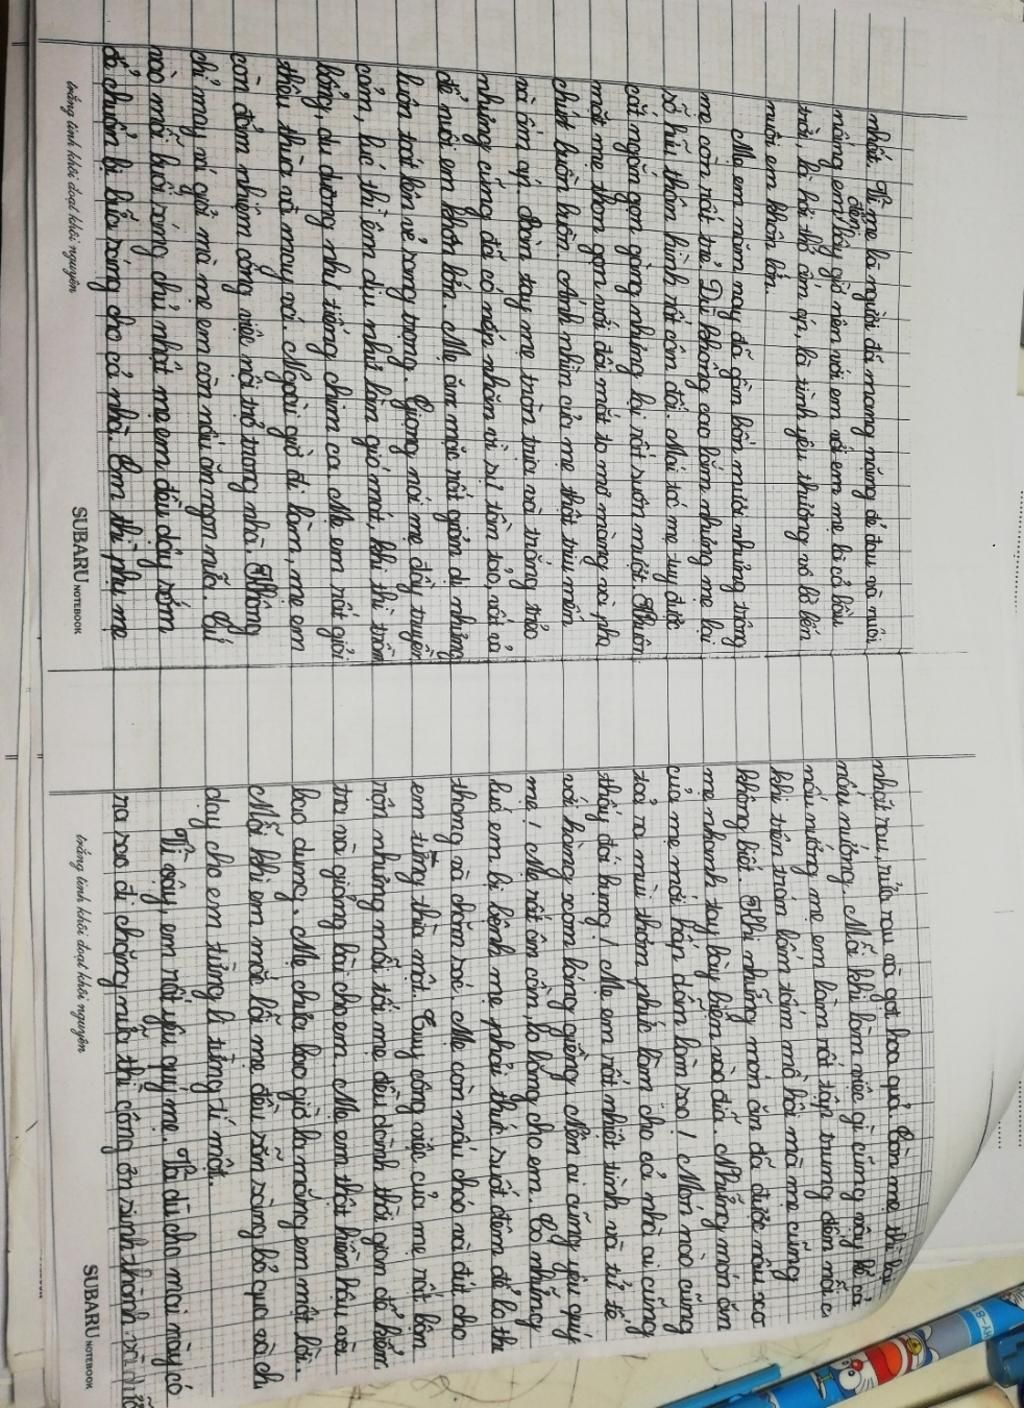 nhất. Vì mẹ là người đã mang nặng đẻ đau và nuôi
nấng em đến bây giờ nên với em mẹ là cả bầu
trời, là hơi thở ấm áp, là tình yêu thương vô bờ bến
nuôi em khôn lớn.
Mẹ em năm nay đã gần bốn mươi nhưng trông
mẹ còn rất trẻ. Dù không cao lắm nhưng mẹ lại
sở hữu thân hình rất cân đối. Mái tóc mẹ tuy được
cắt ngắn gọn gàng nhưng lại rất suôn mượt. Khuôn
mặt mẹ thon gọn với đôi mắt to mơ màng và pha
chút buồn buồn. Ánh nhìn của mẹ thật trìu mến
và ấm áp. Bàn tay mẹ tròn trịa và trắng trẻo
nhưng cũng đã có nếp nhăn vì sự tần tảo, vất vả
để nuôi em khôn lớn. Mẹ ăn mặc rất giản dị nhưng
luôn toát lên vẻ sang trọng. Giọng nói mẹ đầy truyền
cảm, lúc thì êm dịu như làn gió mát, khi thì trầm
bổng, du dương như tiếng chim ca. Mẹ em rất giỏi
thêu thùa và may vá. Ngoài giờ đi làm, mẹ em
còn đảm nhiệm công việc nội trợ trong nhà. Không
chỉ may vá giỏi mà mẹ em còn nấu ăn ngon nữa. Cứ
vào mỗi buổi sáng chủ nhật mẹ em đều dậy sớm
để chuẩn bị bữa sáng cho cả nhà. Em thì phụ mẹ
trắng tinh khôi đoạt khôi nguyên
SUBARU NOTEBOOK
nhặt rau, rửa rau và gọt hoa quả. Còn mẹ thì lại
nấu nướng. Mỗi khi làm việc gì cũng vậy kể cả
nấu nướng mẹ em làm rất tập trung đến nỗi có
khi trên trán lấm tấm mồ hôi mà mẹ cũng
không biết. Khi những món ăn đã được nấu xong
mẹ nhanh tay bày biện vào đĩa. Những món ăn
của mẹ mới hấp dẫn làm sao! Món nào cũng
toả ra mùi thơm phức làm cho cả nhà ai cũng
thấy đói bụng! Mẹ em rất nhiệt tình và tử tế
với hàng xóm láng giềng. Nên ai cũng yêu quý
mẹ! Mẹ rất ân cần, lo lắng cho em. Có những
lúc em bị bệnh mẹ phải thức suốt đêm để lo thu
thang và chăm sóc. Mẹ còn nấu cháo và đút cho
em từng thìa một. Tuy công việc của mẹ rất bận
rộn nhưng mỗi tối mẹ đều dành thời gian để kiểm
tra và giảng bài cho em. Mẹ em thật hiền hậu và
bao dung. Mẹ chưa bao giờ la mắng em một lời.
Mỗi khi em mắc lỗi mẹ đều sẵn sàng bỏ qua và chỉ
dạy cho em từng li từng tí một.
Vì vậy, em rất yêu quý mẹ. Và dù cho mai này có
ra sao đi chăng nữa thì công ơn sinh thành và
trắng tinh khôi đoạt khôi nguyên
SUBARU NOTEBOOK